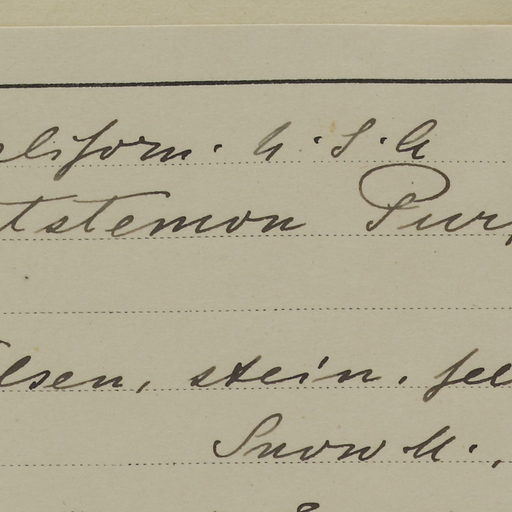 aliforn. U.S.A
tstemon Pur
lsen, stein. fel
Snow M.,